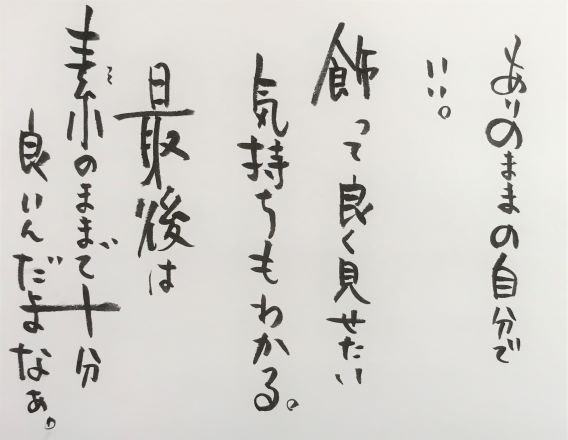 ありのままの自分で
いい。
飾って良く見せたい
気持ちもわかる。
最後は
素のままで十分
良いんだよなぁ。